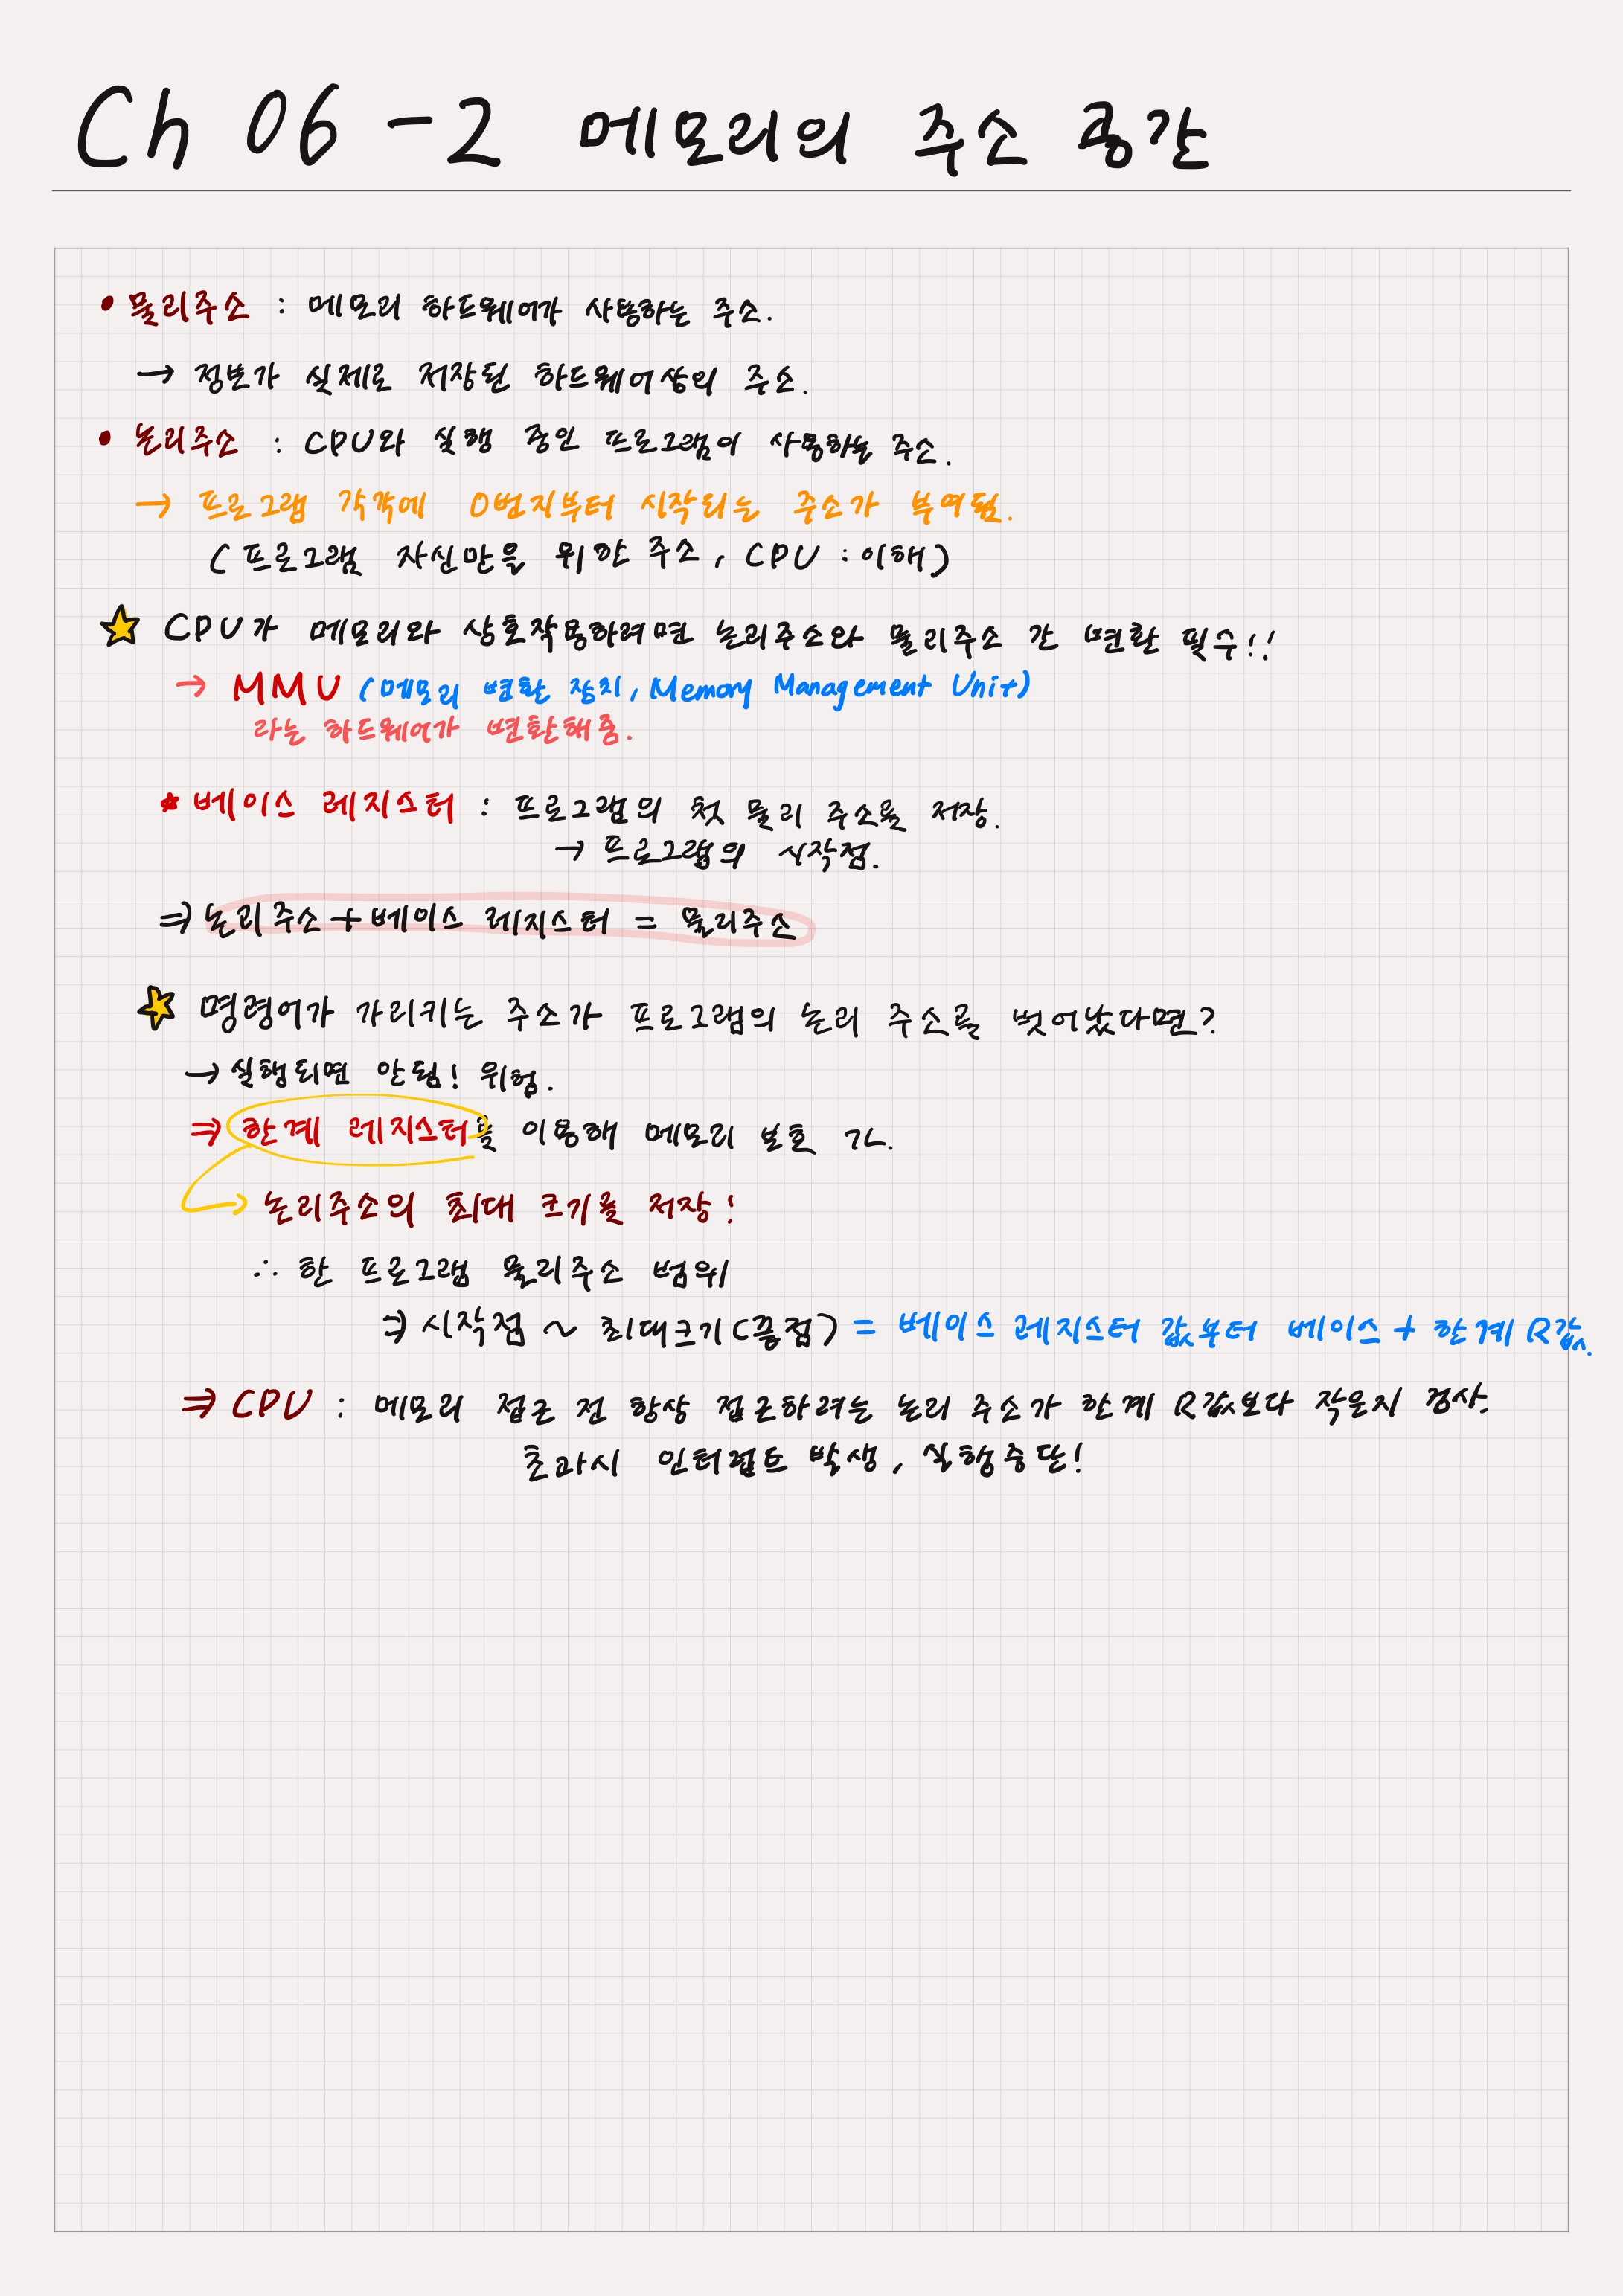 Ch 06 - 2 메모리의 주소 공간
• 물리주소 : 메모리 하드웨어가 사용하는 주소.
→ 정보가 실제로 저장된 하드웨어상의 주소.
• 논리주소 : CPU와 실행 중인 프로그램이 사용하는 주소.
→ 프로그램 각각에 0번지부터 시작되는 주소가 부여됨.
( 프로그램 자신만을 위한 주소, CPU : 이해 )
☆ CPU가 메모리와 상호작용하려면 논리주소와 물리주소 간 변환 필수!!
→ MMU (메모리 변환 장치, Memory Management Unit)
라는 하드웨어가 변환해줌.
★ 베이스 레지스터 : 프로그램의 첫 물리 주소를 저장.
→ 프로그램의 시작점.
⇒ 논리주소 + 베이스 레지스터 = 물리주소
☆ 명령어가 가리키는 주소가 프로그램의 논리 주소를 벗어났다면?
→ 실행되면 안됨! 위험.
⇒ 한계 레지스터를 이용해 메모리 보호 가.
→ 논리주소의 최대 크기를 저장!
∴ 한 프로그램 물리주소 범위
⇒ 시작점 ~ 최대크기(끝점) = 베이스 레지스터 값부터 베이스 + 한계 R값.
⇒ CPU : 메모리 접근 전 항상 접근하려는 논리 주소가 한계 R값보다 작은지 검사.
초과시 인터럽트 발생, 실행중단!